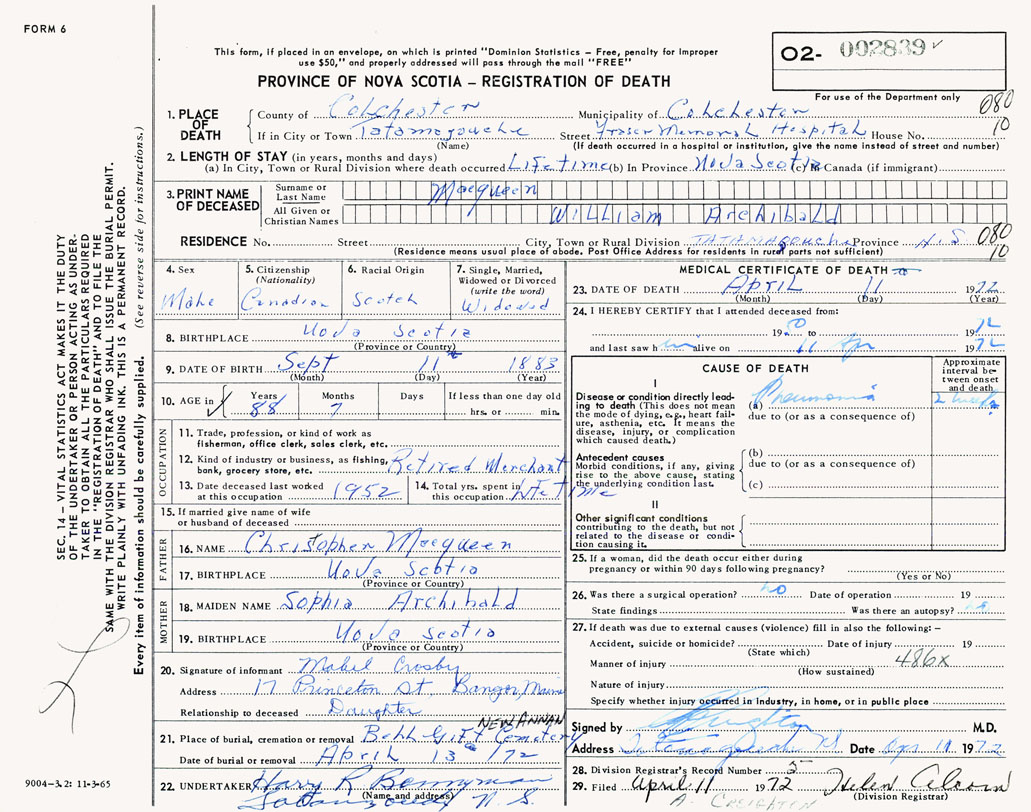 FORM 6
This form, if placed in an envelope, on which is printed "Dominion Statistics – Free, penalty for improper
use $50," and properly addressed will pass through the mail "FREE"
PROVINCE OF NOVA SCOTIA – REGISTRATION OF DEATH
02- 002839
For use of the Department only
080
10
1. PLACE OF DEATH
County of Colchester Municipality of Colchester
If in City or Town Tatamagouche Street Fraser Memorial Hospital House No.
(Name) (If death occurred in a hospital or institution, give the name instead of street and number)
2. LENGTH OF STAY (in years, months and days)
(a) In City, Town or Rural Division where death occurred Lifetime (b) In Province Nova Scotia (c) in Canada (if immigrant)
3. PRINT NAME OF DECEASED
Surname or Last Name Macqueen
All Given or Christian Names William Archibald
RESIDENCE No. Street City, Town or Rural Division TATAMAgouche Province N.S
080
10
(Residence means usual place of abode. Post Office Address for residents in rural parts not sufficient)
4. Sex
Male
5. Citizenship
(Nationality)
Canadian
6. Racial Origin
Scotch
7. Single, Married,
Widowed or Divorced
(write the word)
Widowed
8. BIRTHPLACE Nova Scotia
(Province or Country)
9. DATE OF BIRTH Sept 11 1883
(Month) (Day) (Year)
10. AGE in
Years
88
Months
7
Days
If less than one day old
hrs. or min.
OCCUPATION
11. Trade, profession, or kind of work as
fisherman, office clerk, sales clerk, etc.
12. Kind of industry or business, as fishing,
bank, grocery store, etc. Retired Merchant
13. Date deceased last worked
at this occupation 1952
14. Total yrs. spent in
this occupation Life time
15. If married give name of wife
or husband of deceased
FATHER
16. NAME Christopher Macqueen
17. BIRTHPLACE Nova Scotia
(Province or Country)
MOTHER
18. MAIDEN NAME Sophia Archibald
19. BIRTHPLACE Nova Scotia
(Province or Country)
20. Signature of informant Mabel Crosby
Address 17 Princeton St, Bangor, Maine
Relationship to deceased Daughter
NEW ANNAN
21. Place of burial, cremation or removal Bell Grift Cemetery
Date of burial or removal April 13 /72
22. UNDERTAKER Harry R Bennyman
(Name and address)
Tatamagouche N.S.
MEDICAL CERTIFICATE OF DEATH
23. DATE OF DEATH April 11 1972
(Month) (Day) (Year)
24. I HEREBY CERTIFY that I attended deceased from:
19 50 to 19 72
and last saw him alive on 11 Apr 1972
CAUSE OF DEATH
Approximate
interval be-
tween onset
and death
I
Disease or condition directly lead-
ing to death (This does not mean
the mode of dying, e.g., heart fail-
ure, asthenia, etc. It means the
disease, injury, or complication
which caused death.)
(a) Pneumonia
2 weeks
due to (or as a consequence of)
Antecedent causes
Morbid conditions, if any, giving
rise to the above cause, stating
the underlying condition last.
(b)
due to (or as a consequence of)
(c)
II
Other significant conditions
contributing to the death, but not
related to the disease or condi-
tion causing it.
25. If a woman, did the death occur either during
pregnancy or within 90 days following pregnancy?
(Yes or No)
26. Was there a surgical operation? no Date of operation 19
State findings Was there an autopsy? no
27. If death was due to external causes (violence) fill in also the following: –
Accident, suicide or homicide? Date of injury 19
(State which)
Manner of injury 486x
(How sustained)
Nature of injury
Specify whether injury occurred in industry, in home, or in public place
Signed by M.D.
Address Tatamagouche NS Date Apr 11 1972
28. Division Registrar's Record Number 5
29. Filed April 11 1972 Helen
(Division Registrar)
A. CREIGHTON
SEC. 14 – VITAL STATISTICS ACT MAKES IT THE DUTY
OF THE UNDERTAKER OR PERSON ACTING AS UNDER-
TAKER TO OBTAIN ALL THE PARTICULARS REQUIRED
IN THE "REGISTRATION OF DEATH" AND TO FILE THE
SAME WITH THE DIVISION REGISTRAR WHO SHALL ISSUE THE BURIAL PERMIT.
WRITE PLAINLY WITH UNFADING INK. THIS IS A PERMANENT RECORD.
Every item of information should be carefully supplied. (See reverse side for instructions.)
9004-3.2: 11-3-65